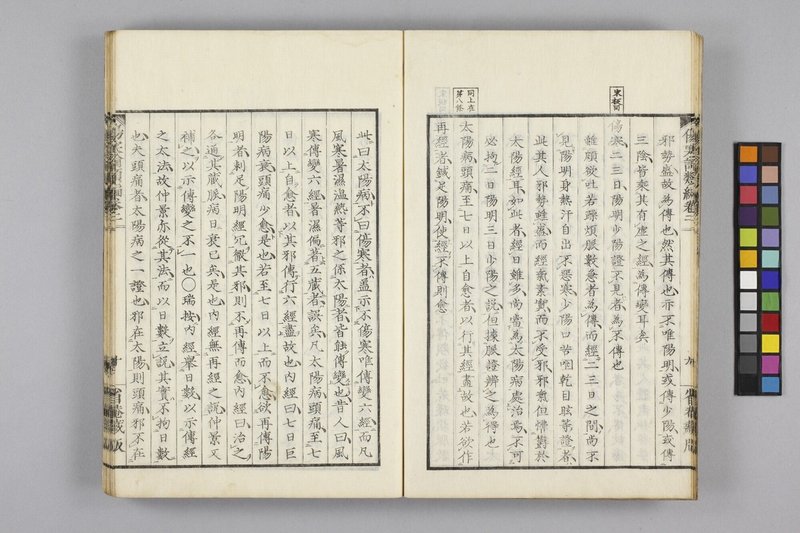 邪勢盛故為傳也然其傳也亦不唯陽明或傳少陽或傳
三陰皆乘其有虚之經為傳變耳矣
傷寒二三日陽明少陽證不見者為不傳也
雖頤欲吐若躁煩脈數急者為傳而經二三日之間尚不
見陽明身熱汗自出不惡寒少陽口苦咽乾目眩等證者
此其人邪勢雖盛而經氣素實而不受邪邪氣但怫欝於
太陽經耳如此者經日雖多尚當為太陽病處治焉不可
必拘二日陽明三日少陽之説但揀脈證辨之為得也
太陽病頭痛至七日以上自愈者以行其經盡故也若欲作
再經者鍼足陽明使經不傳則愈
此曰太陽病不曰傷寒者蓋示不傷寒唯傳變六經而凡
風寒暑濕温熱等邪之係太陽者皆能傳變也昔人曰風
寒傳變六經暑濕偏著五藏者誤矣凡太陽病頭痛至七
日以上自愈者以其邪傳行六經盡故也内經曰七日巨
陽病衰頭痛少愈是也若至七日以上而不愈欲再傳陽
明者刺足陽明經冗徹其邪則不再傳而愈内經曰治之
各通其藏脈病日衰已矣是也内經無再經之説仲景又
補之以示傳變之不一也○瑞按内經舉日數以示傳經
之太法故仲景亦從其法而以日數立説其實不拘日數
也夫頭痛者太陽病之一證也邪在太陽則頭痛邪不在
宋板同
同上在
第八條
九
省菴藏版